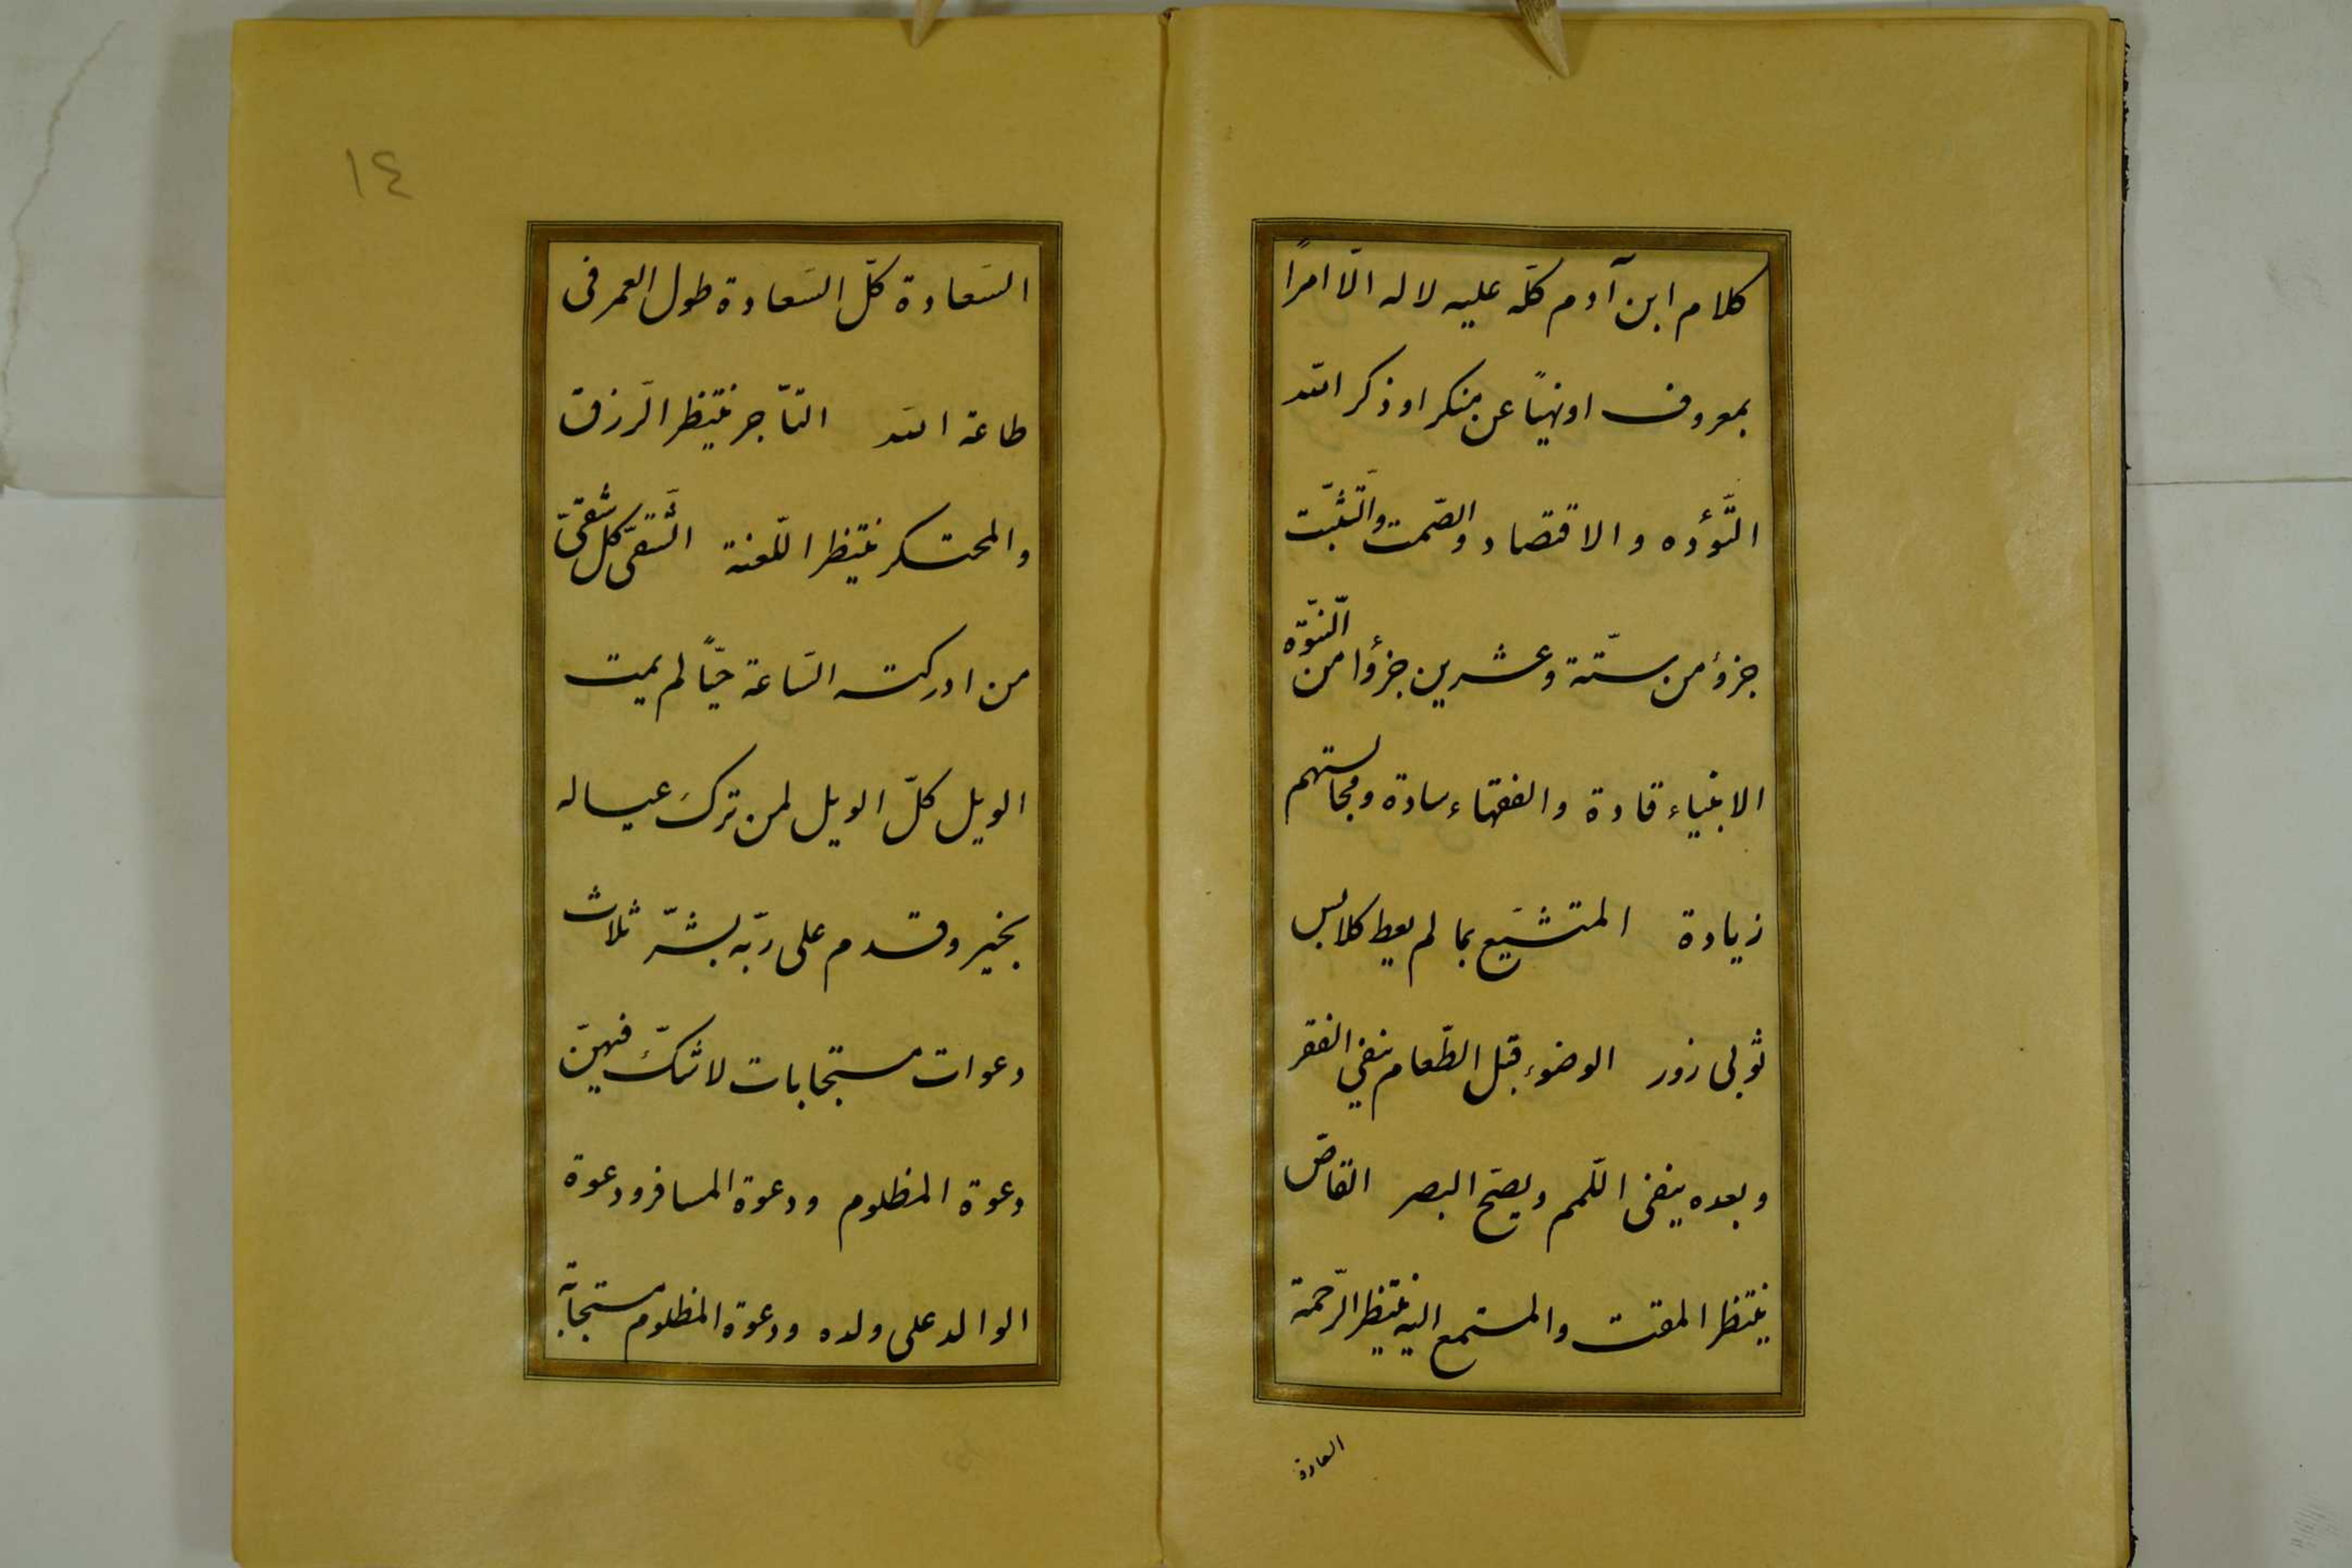 كلام ابن آدم كلّه عليه لا له الّا امرًا
بمعروف او نهيًا عن منكر او ذكر الله
التّؤده و الاقتصاد و الصّمت و التّثبّت
جزؤ من ستّة و عشرين جزؤا من النّبوّه
الانبياء قادة و الفقهاء سادة و مجالستهم
زيادة المتشبّع بما لم يعط كلابس
ثوبى زور الوضوء قبل الطّعام ينفي الفقر
و بعده ينفى اللّمم و يصحّ البصر القاصّ
ينتظر المقت و المستمع اليه ينتظر الرّحمة
السعادة
١٤
السّعادة كلّ السّعادة طول العمر فى
طاعة الله التّاجر ينتظر الرّزق
و المحتكر ينتظر اللّعنة الشّقىّ كل شقىّ
من ادركته السّاعة حيًّا لم يمت
الويل كلّ الويل لمن ترك عياله
بخير و قدم على ربّه بشرّ ثلاث
دعوات مستجابات لا شكّ فيهنّ
دعوة المظلوم و دعوة المسافر و دعوة
الوالد على ولده و دعوة المظلوم مستجابة